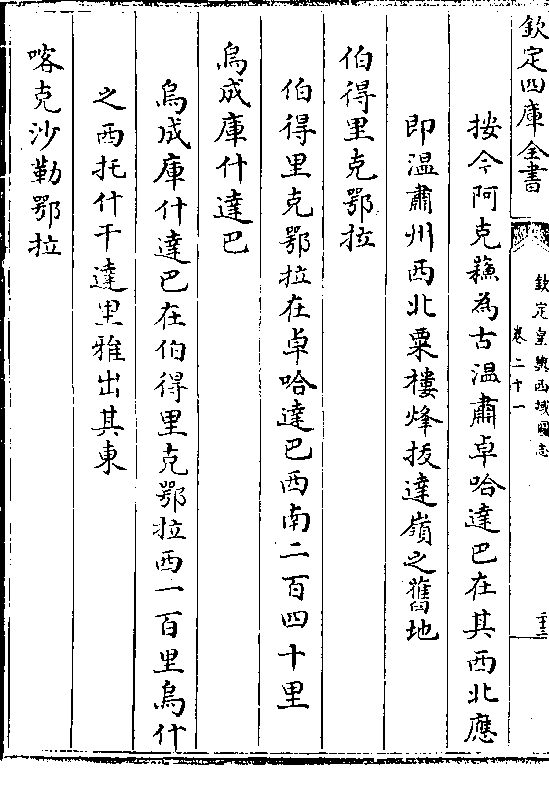 欽定四庫全書
欽定皇輿西域圖志
卷二十一
二十三
按今阿克蘓為古温肅卓哈達巴在其西北應
即温肅州西北粟樓烽拔達嶺之舊地
伯得里克鄂拉
伯得里克鄂拉在卓哈達巴西南二百四十里
烏成庫什達巴
烏成庫什達巴在伯得里克鄂拉西一百里烏什
之西托什干達里雅出其東
喀克沙勒鄂拉